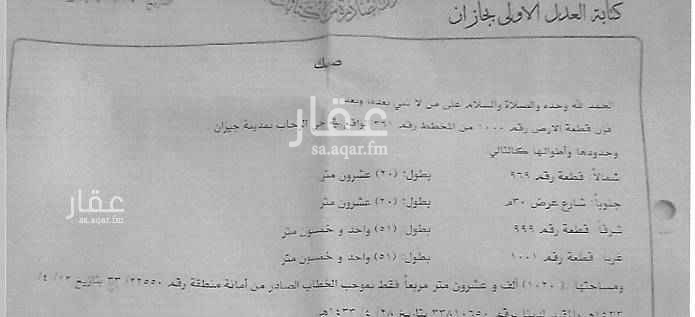 كتابة العدل الاولى بجازان
صك
الحمد لله وحده والصلاة والسلام على من لا نبي بعده، وبعد
فإن قطعة الارض رقم ١٠٠٠ من المخطط رقم ٣٩١ الواقع في حي الرحاب بمدينة جيزان
وحدودها وأطوالها كالتالي
شمالاً: قطعة رقم ٩٦٩ بطول: (٢٠) عشرون متر
جنوباً: شارع عرض ٣٠م بطول: (٢٠) عشرون متر
شرقاً: قطعة رقم ٩٩٩ بطول: (٥١) واحد و خمسون متر
غربا: قطعة رقم ١٠٠١ بطول: (٥١) واحد و خمسون متر
ومساحتها: (١٠٢٠) ألف و عشرون متر مربعاً فقط بموجب الخطاب الصادر من أمانة منطقة رقم ٢٢٥٥٠/٣٣ بتاريخ
برقم ٣٣٨١٠٦٥٠ بتاريخ ٢٨ / ٤ / ١٤٣٣هـ
عقار
sa.aqar.fm
عقار
sa.aqar.fm
عقار